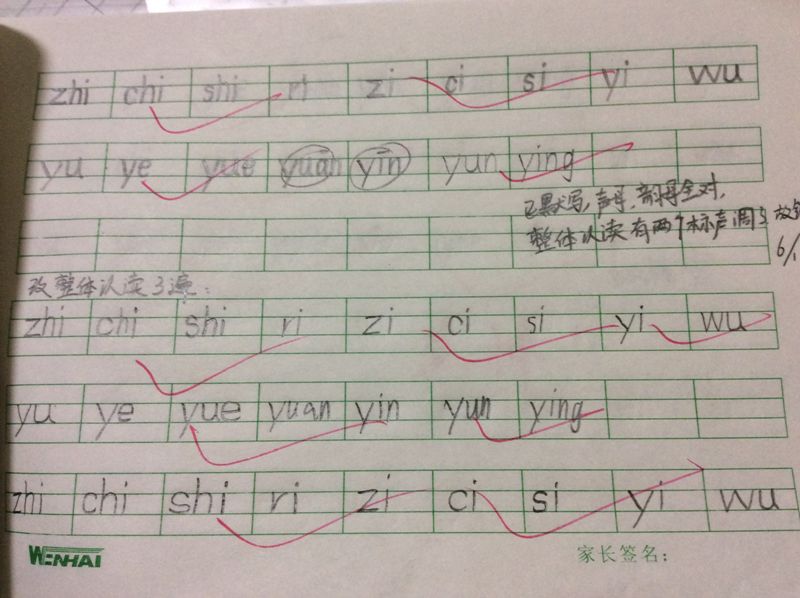 zhi chi shi ri zi ci si yi wu
yu ye yue yuan yin yun ying
已默写,声母、韵母全对,
整体认读有两个标声调
6/1
改整体认读3遍:
zhi chi shi ri zi ci si yi wu
yu ye yue yuan yin yun ying
zhi chi shi ri zi ci si yi wu
WENHAI 家长签名: